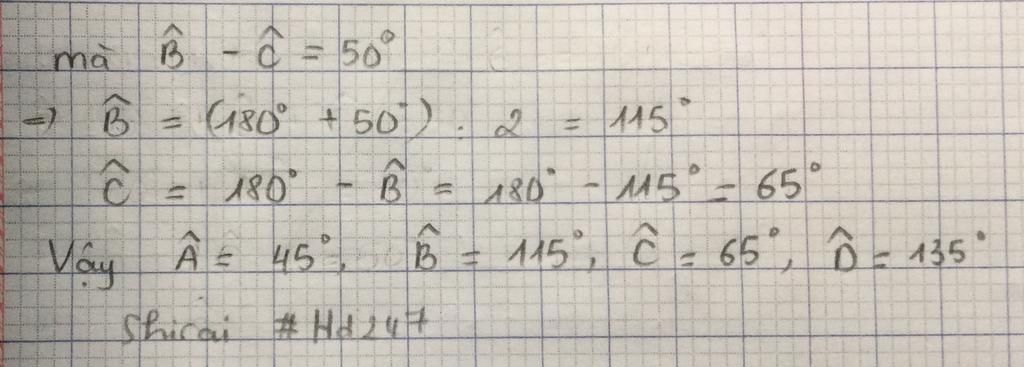 mà B̂ - Ĉ = 50°
=> B̂ = (180° + 50°) : 2 = 115°
Ĉ = 180° - B̂ = 180° - 115° = 65°
Vậy Â = 45°, B̂ = 115°, Ĉ = 65°, D̂ = 135°
Shirai #Hd247